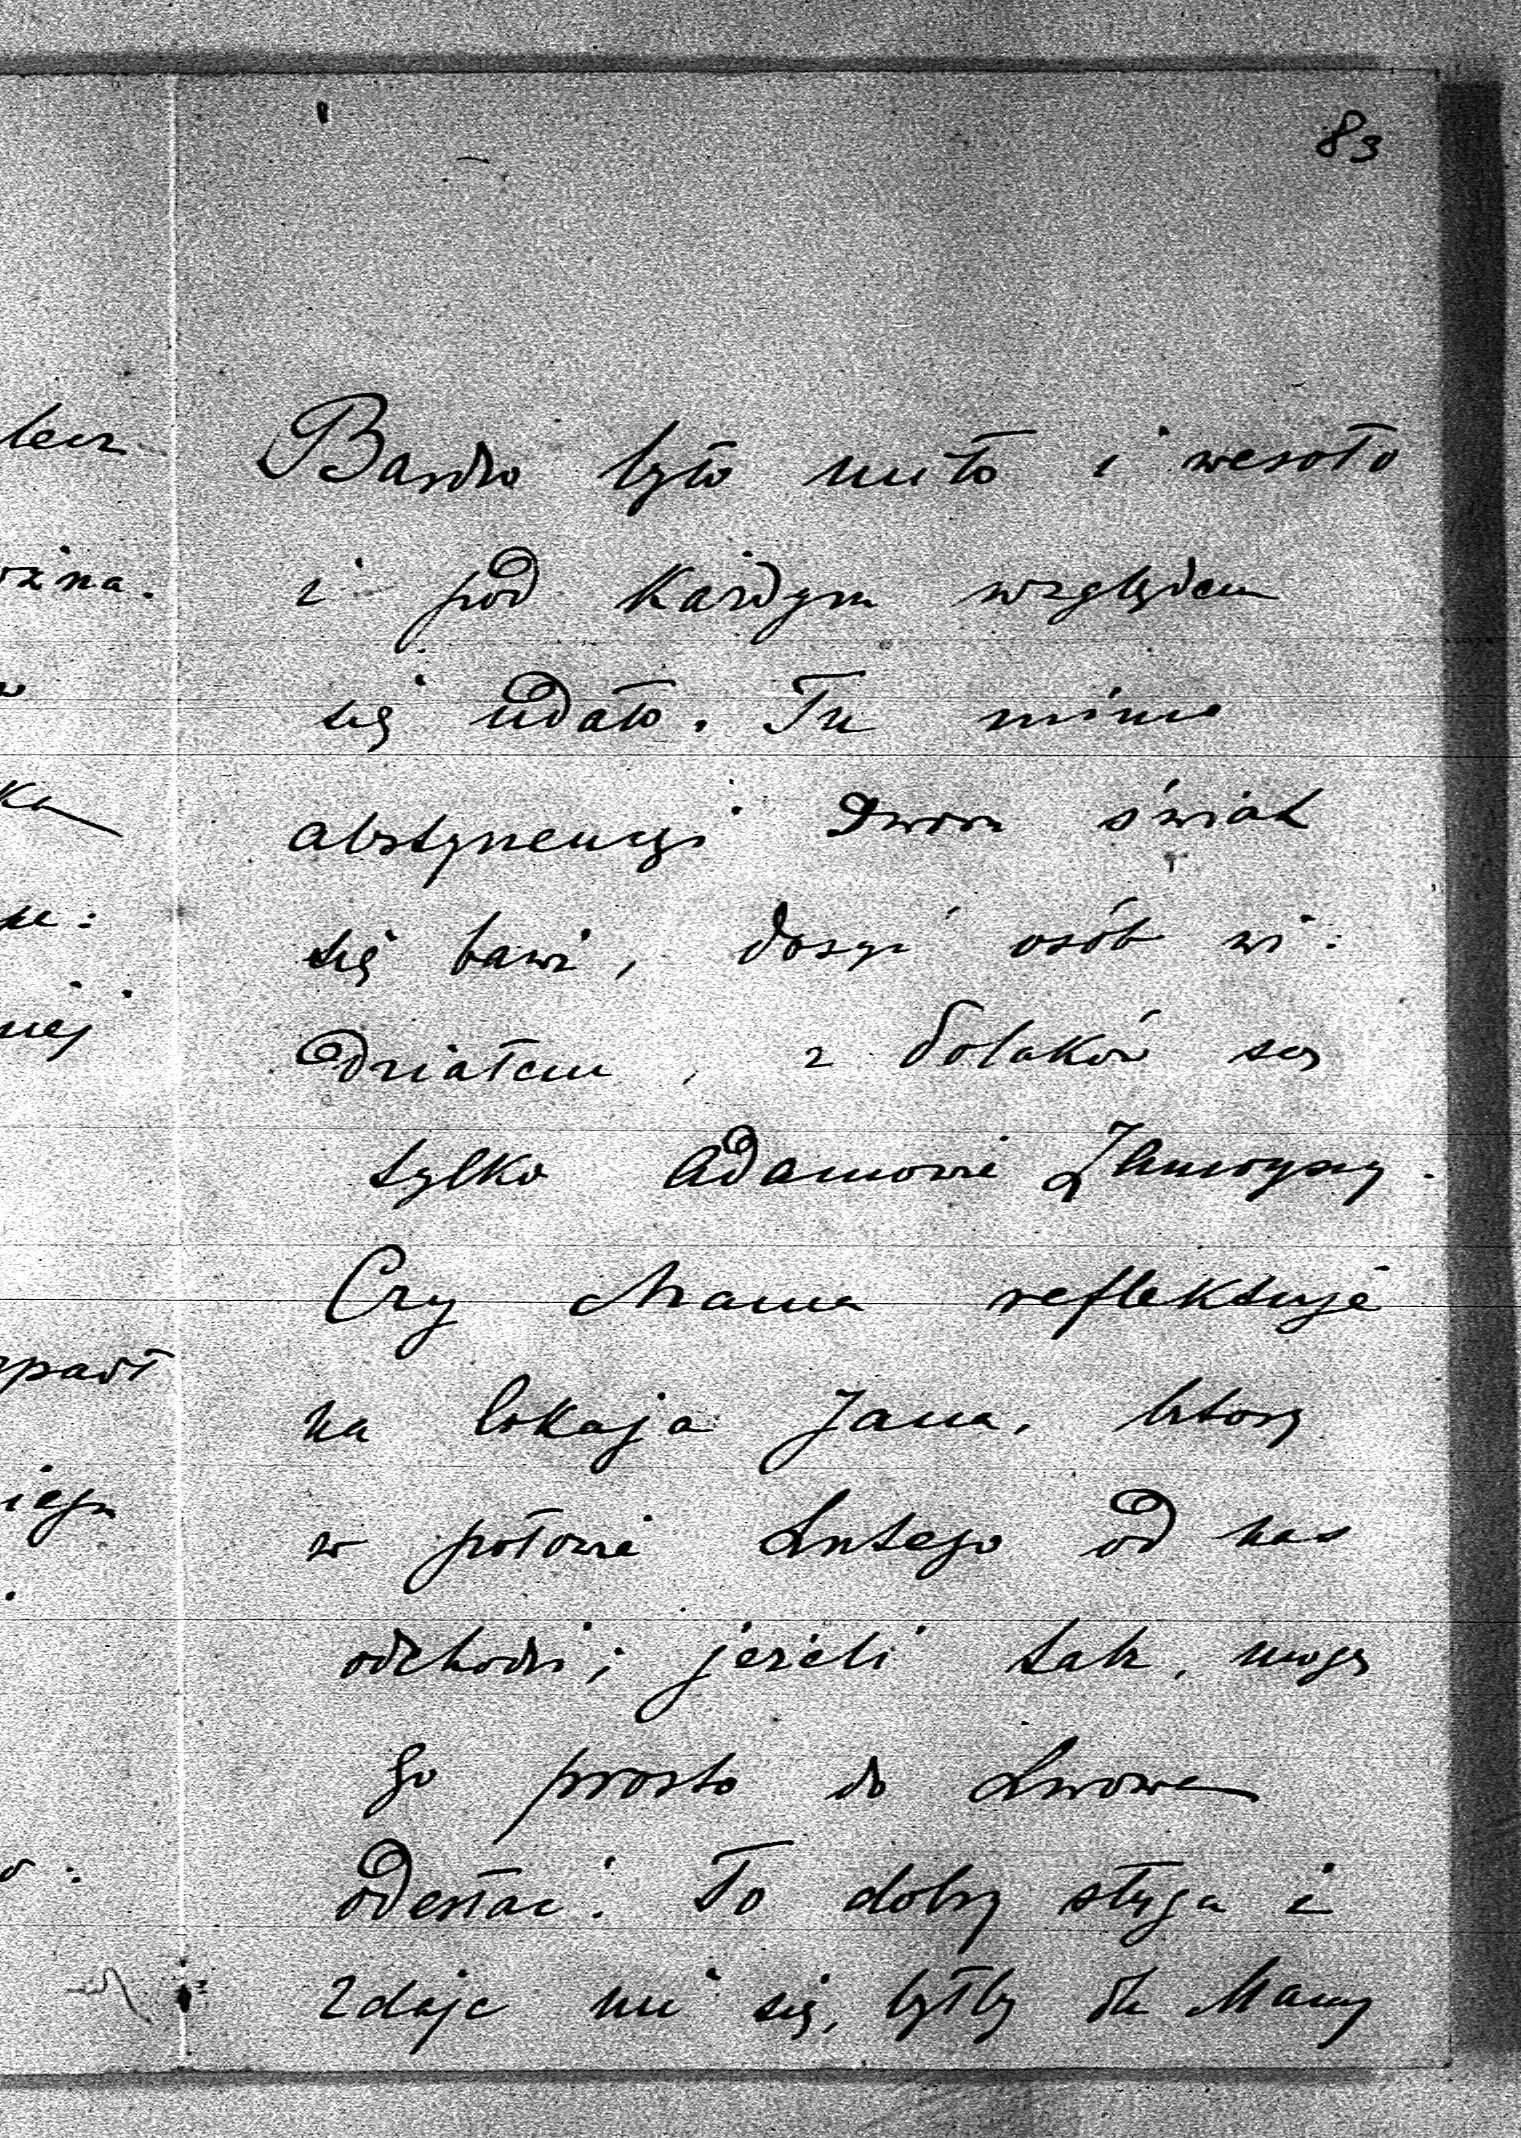 83
lecz
Bardzo było miło i wesoło
i pod każdym względem
się udało. Tu mimo
abstynencyi Dworu świat
się bawi, dosyć osób wi:
działem, z Polaków są
tylko Adamowie Zamoyscy.
Czy Mama reflektuje
na lokaja Jana, który
w połowie Lutego od nas
odchodzi; jeżeli tak, mogę
go prosto do Lwowa
odesłać. To dobry sługa i
zdaje mi się, byłby dla Mamy